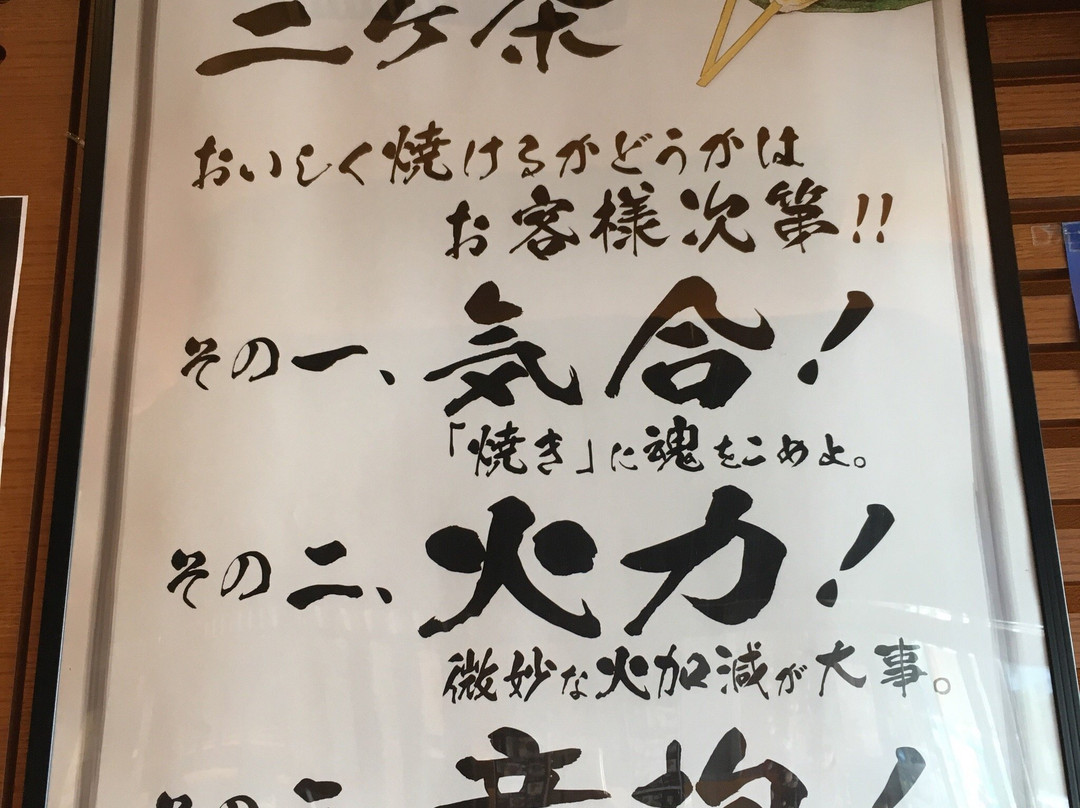 ケ条
おいしく焼けるかどうかは
お客様次第!!
その一、気合!
「焼き」に魂をこめよ。
その二、火力!
微妙な火加減が大事。